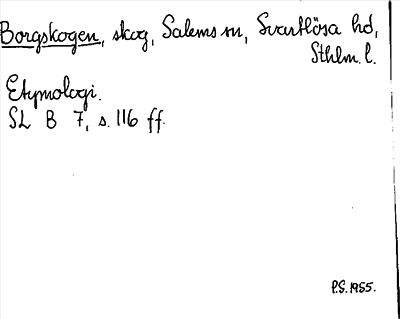 Borgskogen, skog, Salems sn, Svartlösa hd,
Sthlm. l.
Etymologi.
SL B 7, s. 116 ff.
P.S. 1955.